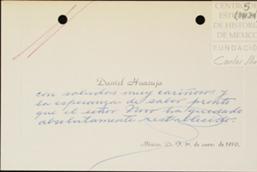 CENTRO DE
ESTUDIOS
DE HISTORIA
DE MEXICO
FUNDACIÓN
Daniel Huacuja
con saludos muy cariñosos y
la esperanza de saber pronto
que el señor ha quedado
absolutamente restablecido.
México, D. F. de enero de